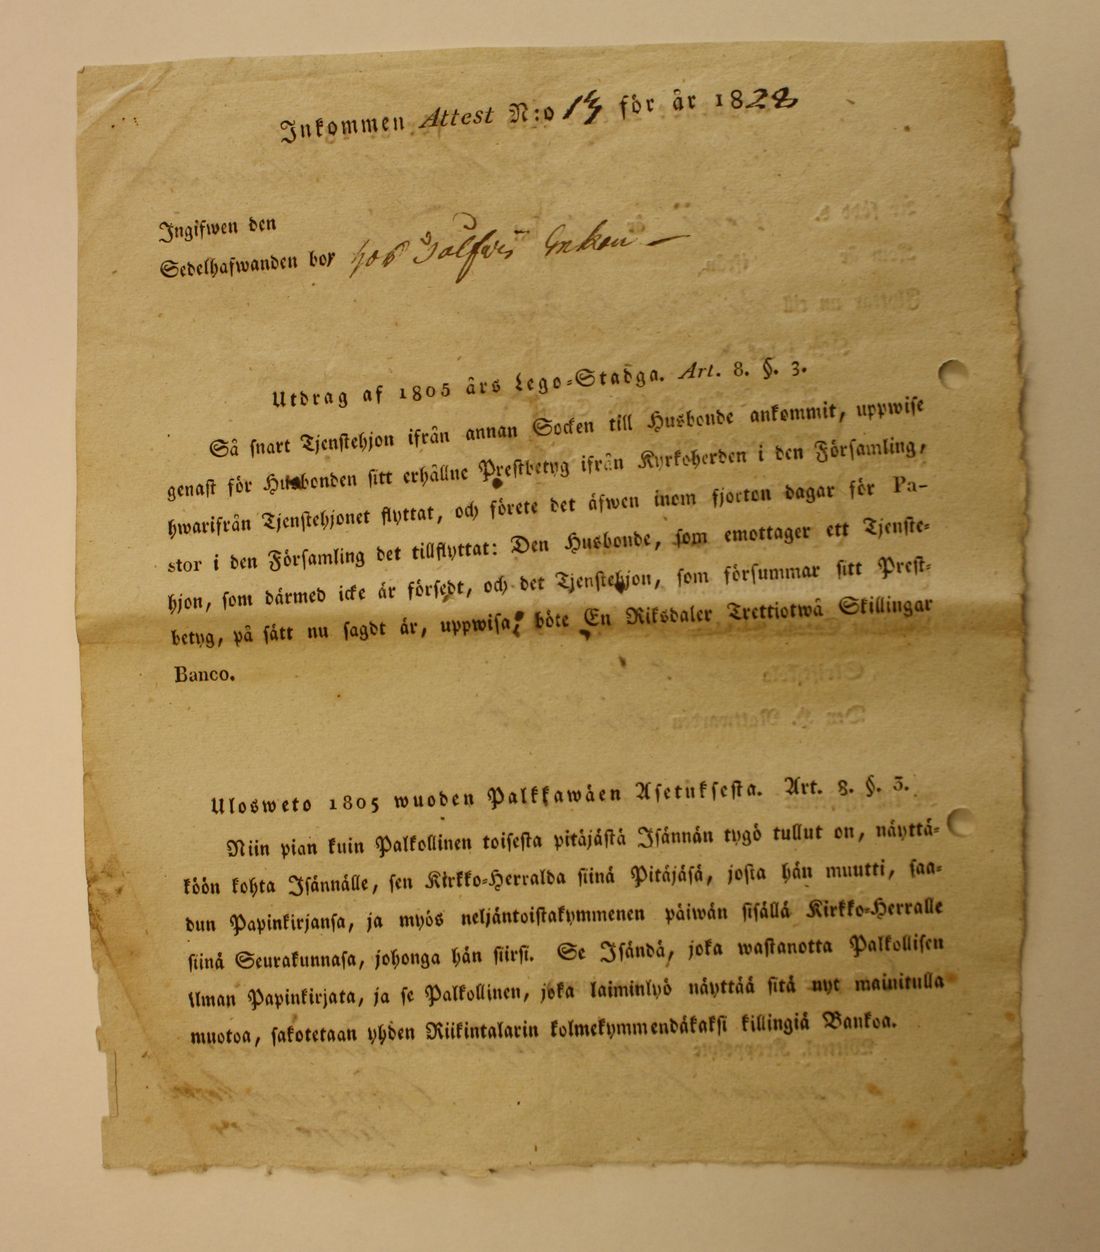 Inkommen Attest N:o 13 för år 1828
Ingifwen den
Sedelhafwanden bor hos Enkan —
Utdrag af 1805 års Lego-Stadga. Art. 8. §. 3.
Så snart Tjenstehjon ifrån annan Socken till Husbonde ankommit, uppwise
genast för Husbonden sitt erhållne Prestbetyg ifrån Kyrkoherden i den Församling,
hwarifrån Tjenstehjonet flyttat, och förete det äfwen inom fjorton dagar för Pa-
stor i den Församling det tillflyttat: Den Husbonde, som emottager ett Tjenste-
hjon, som därmed icke är försedt, och det Tjenstehjon, som försummar sitt Prest-
betyg, på sätt nu sagdt är, uppwisa, böte En Riksdaler Trettiotwå Skillingar
Banco.
Ulosweto 1805 wuoden Palkkawäen Asetuksesta. Art. 8. §. 3.
Niin pian kuin Palkollinen toisesta pitäjästä Isännän tygö tullut on, näyttä-
köön kohta Isännälle, sen Kirkko-Herralda siinä Pitäjäsä, josta hän muutti, saa-
dun Papinkirjansa, ja myös neljäntoistakymmenen päiwän sisällä Kirkko-Herralle
siinä Seurakunnasa, johonga hän siirsi. Se Isändä, joka wastanotta Palkollisen
ilman Papinkirjata, ja se Palkollinen, joka laiminlyö näyttää sitä nyt mainitulla
muotoa, sakotetaan yhden Riikintalarin kolmekymmendäkaksi killingiä Bankoa.